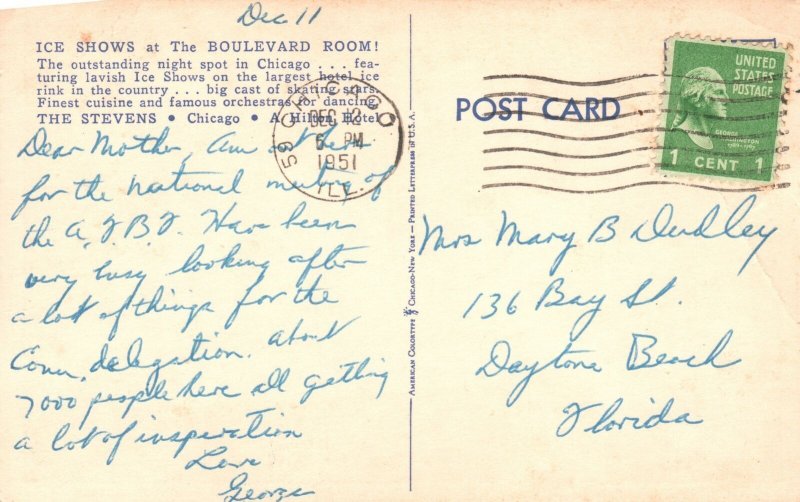 Dec 11
ICE SHOWS at The BOULEVARD ROOM!
The outstanding night spot in Chicago . . . fea-
turing lavish Ice Shows on the largest hotel ice
rink in the country . . . big cast of skating stars.
Finest cuisine and famous orchestras for dancing.
THE STEVENS • Chicago • A Hilton Hotel
Dear Mother, Am out here
for the national meeting of
the A.F.B.F. Have been
very busy looking after
a lot of things for the
Conn. delegation. About
7000 people here all getting
a lot of inspiration
Love
George
CHICAGO
59
DEC 12
6 PM
1951
ILL.
AMERICAN COLORTYPE CHICAGO-NEW YORK — PRINTED LETTERPRESS IN U.S.A.
POST CARD
UNITED
STATES
POSTAGE
GEORGE
WASHINGTON
1 CENT 1
Mrs Mary B Dudley
136 Bay St.
Daytona Beach
Florida